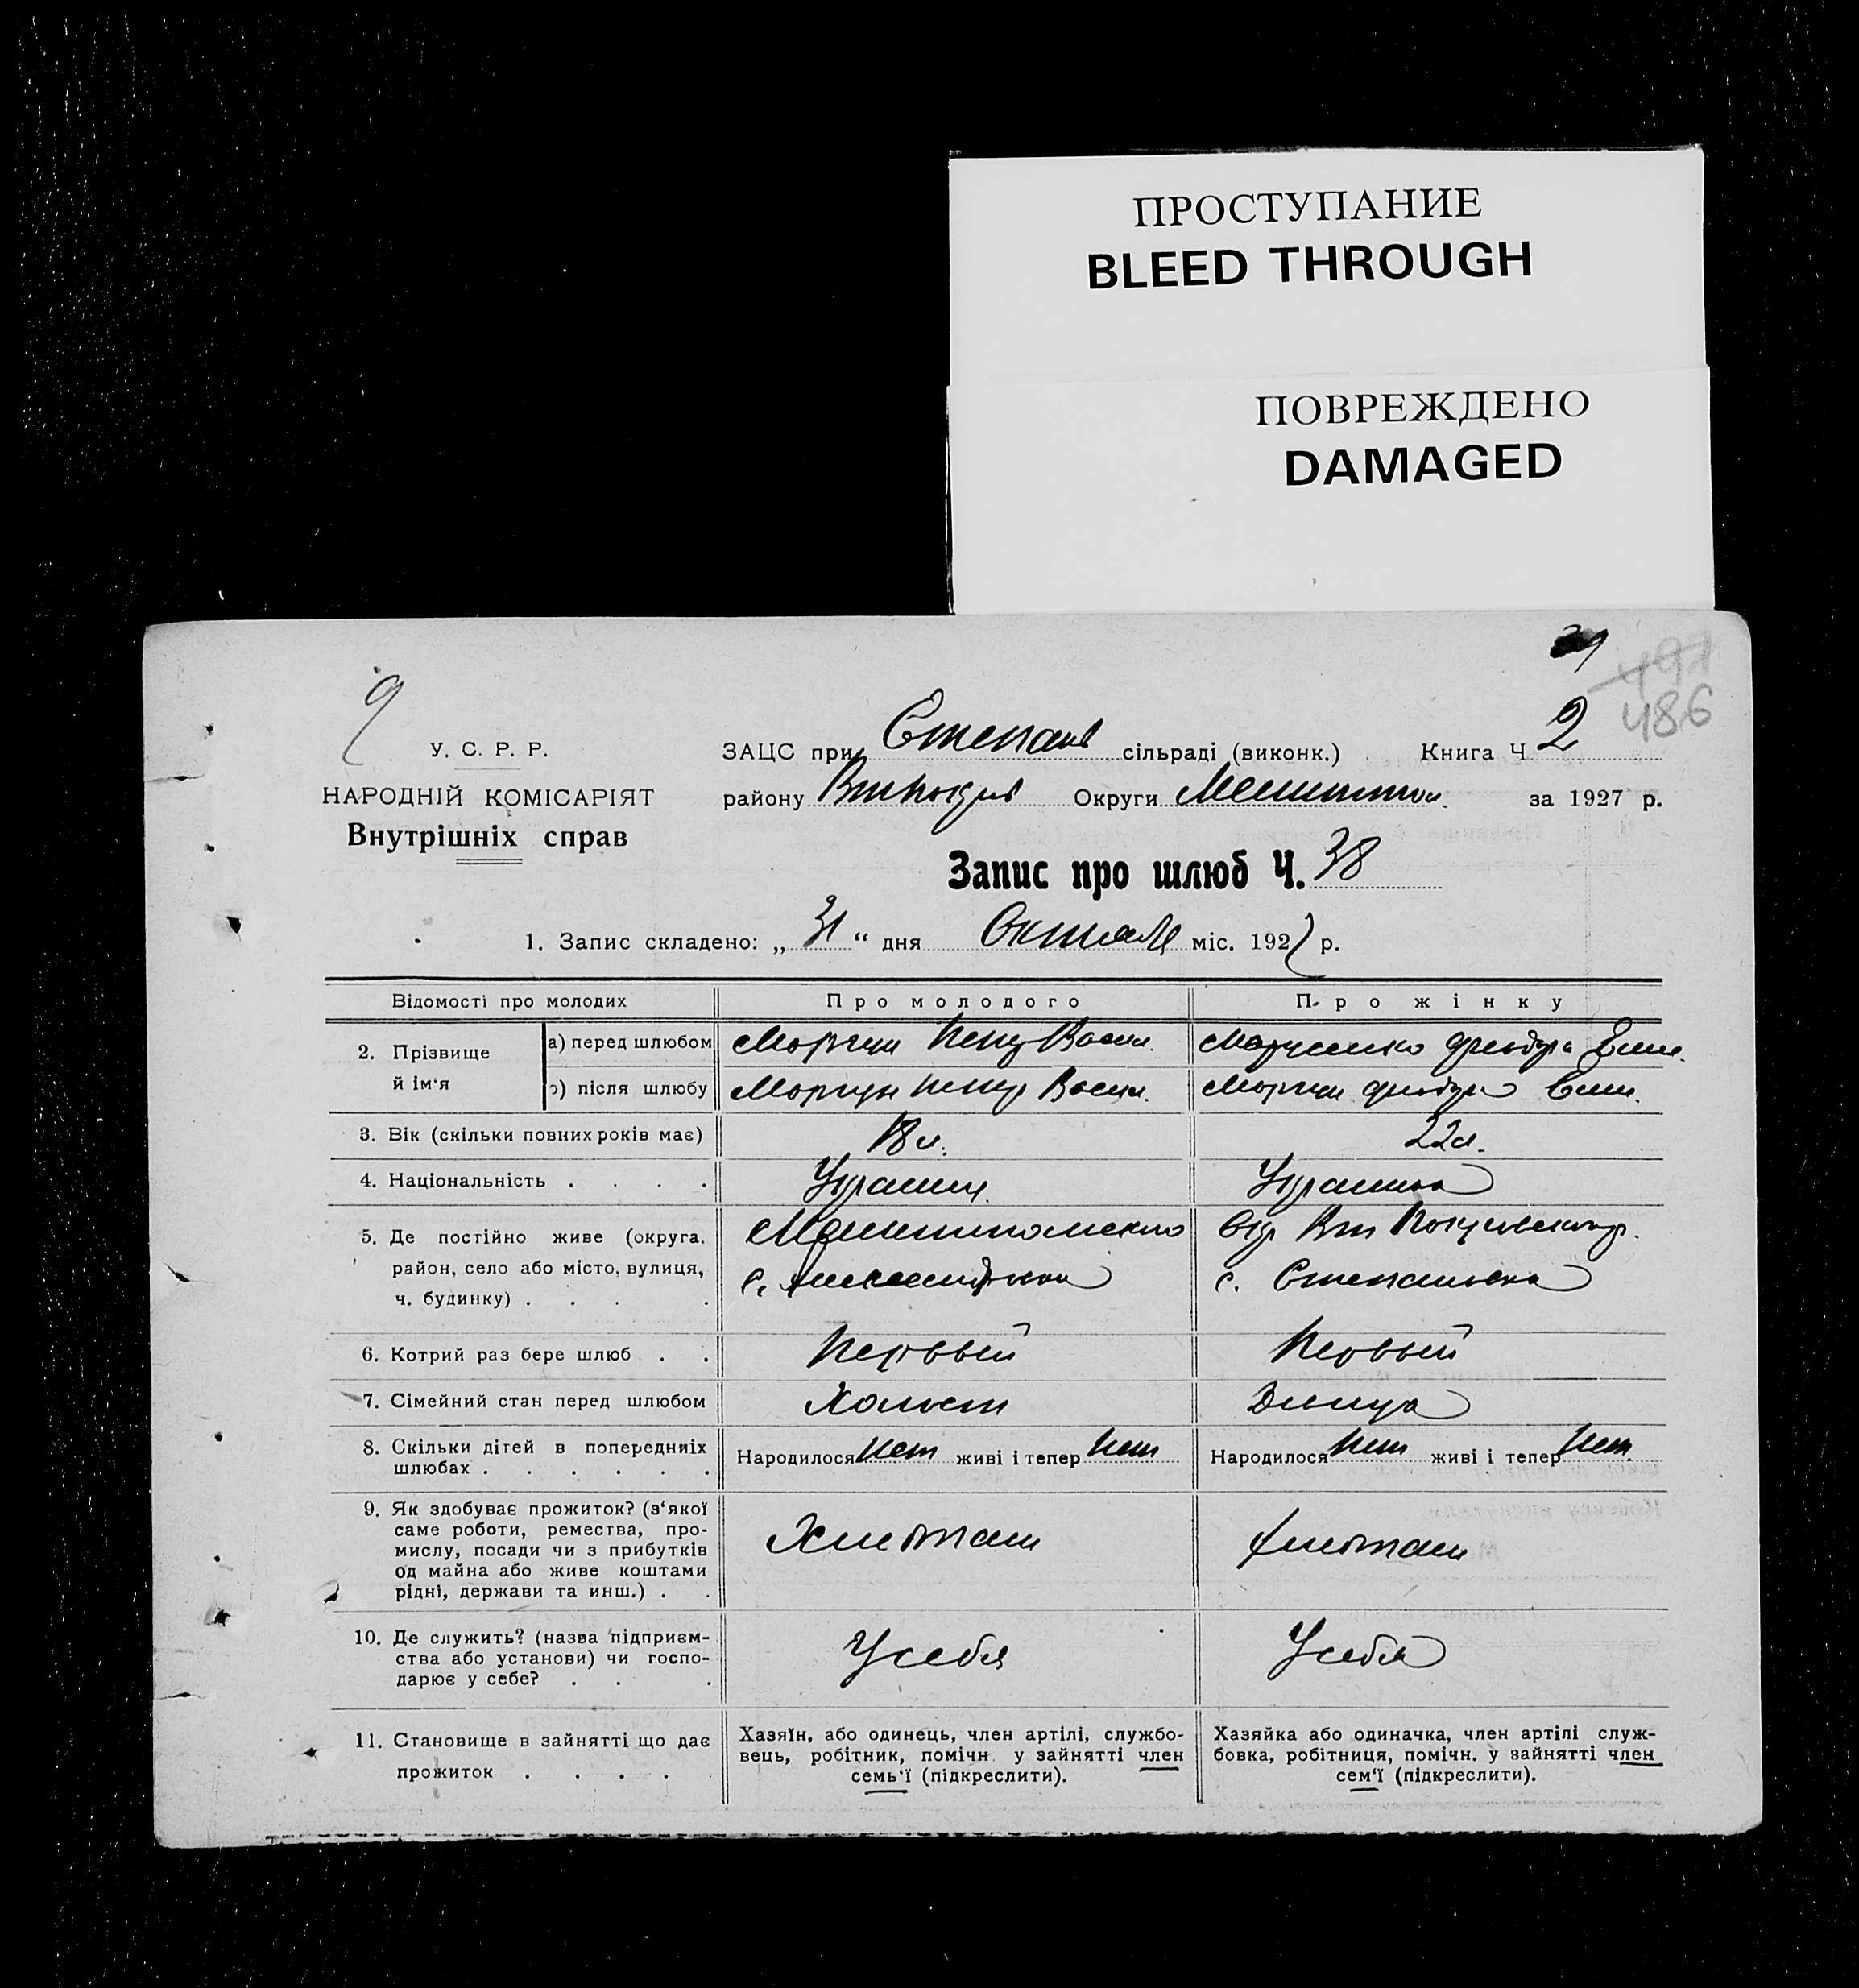 ПРОСТУПАНИЕ
BLEED THROUGH
ПОВРЕЖДЕНО
DAMAGED
491
486
9
У. С. Р. Р.
НАРОДНІЙ КОМІСАРІЯТ
Внутрішніх справ
ЗАЦС при Степанів сільраді (виконк.) Книга Ч. 2
району Округи за 1927 р.
Запис про шлюб Ч. 38
1. Запис складено: „ 31 “ дня Октября міс. 1927 р.
Відомості про молодих Про молодого Про жінку
2. Прізвище й ім‘я
а) перед шлюбом Моргун Васил.
б) після шлюбу Моргун Васил. Моргун
3. Вік (скільки повних років має) 18 л. 22 л.
4. Національність . . . . Украинец Украинка
5. Де постійно живе (округа, с. Степановка
район, село або місто, вулиця,
ч. будинку) . . . .
6. Котрий раз бере шлюб . . Первый Первый
7. Сімейний стан перед шлюбом Холост Девица
8. Скільки дітей в попередніх шлюбах . . . . . . Народилося нет живі і тепер нет Народилося нет живі і тепер нет
9. Як здобуває прожиток? (з‘якої
саме роботи, ремества, про-
мислу, посади чи з прибутків
од майна або живе коштами
рідні, держави та инш.) . . Хлебопаш Хлебопаш
10. Де служить? (назва підприєм-
ства або установи) чи госпо-
дарює у себе? . . . У себя У себя
11. Становище в зайнятті що дає
прожиток . . . . .
Хазяїн, або одинець, член артілі, службо-
вець, робітник, помічн. у зайнятті член
семь‘ї (підкреслити).
Хазяйка або одиначка, член артілі служ-
бовка, робітниця, помічн. у зайнятті член
сем‘ї (підкреслити).